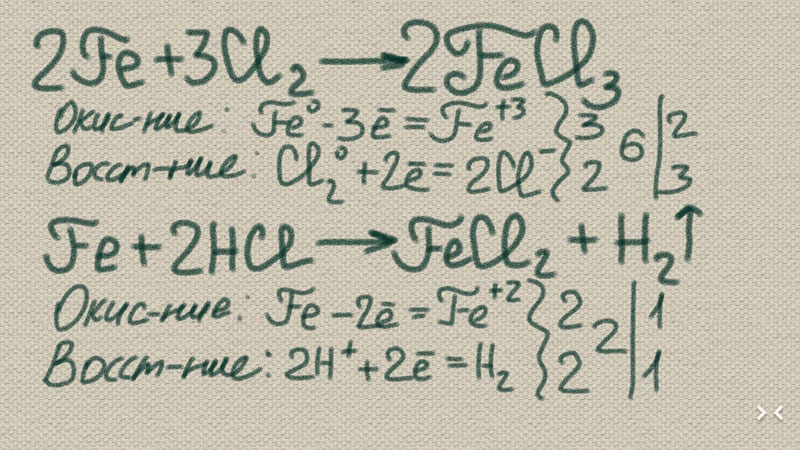 2Fe+3Cl₂→2FeCl₃
Окис-ние: Fe⁰-3ē=Fe⁺³ } 3 6 | 2
Восст-ние: Cl₂⁰+2ē=2Cl⁻ } 2 | 3
Fe+2HCl→FeCl₂+H₂↑
Окис-ние: Fe-2ē=Fe⁺² } 2 2 | 1
Восст-ние: 2H⁺+2ē=H₂ } 2 | 1